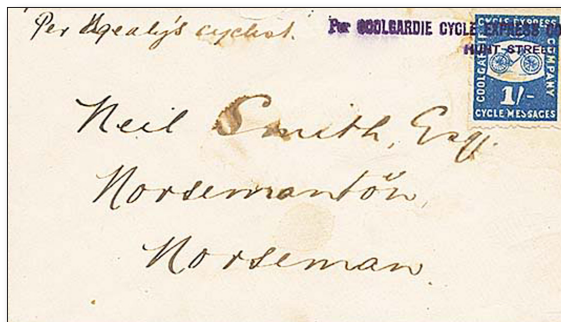 Per Healy's cyclist.
Per COOLGARDIE CYCLE EXPRESS CO
HUNT STREET
CYCLE EXPRESS
COOLGARDIE
COMPANY
1/-
CYCLE MESSAGES
Neil Smith, Esq.
Norsemanton,
Norseman.